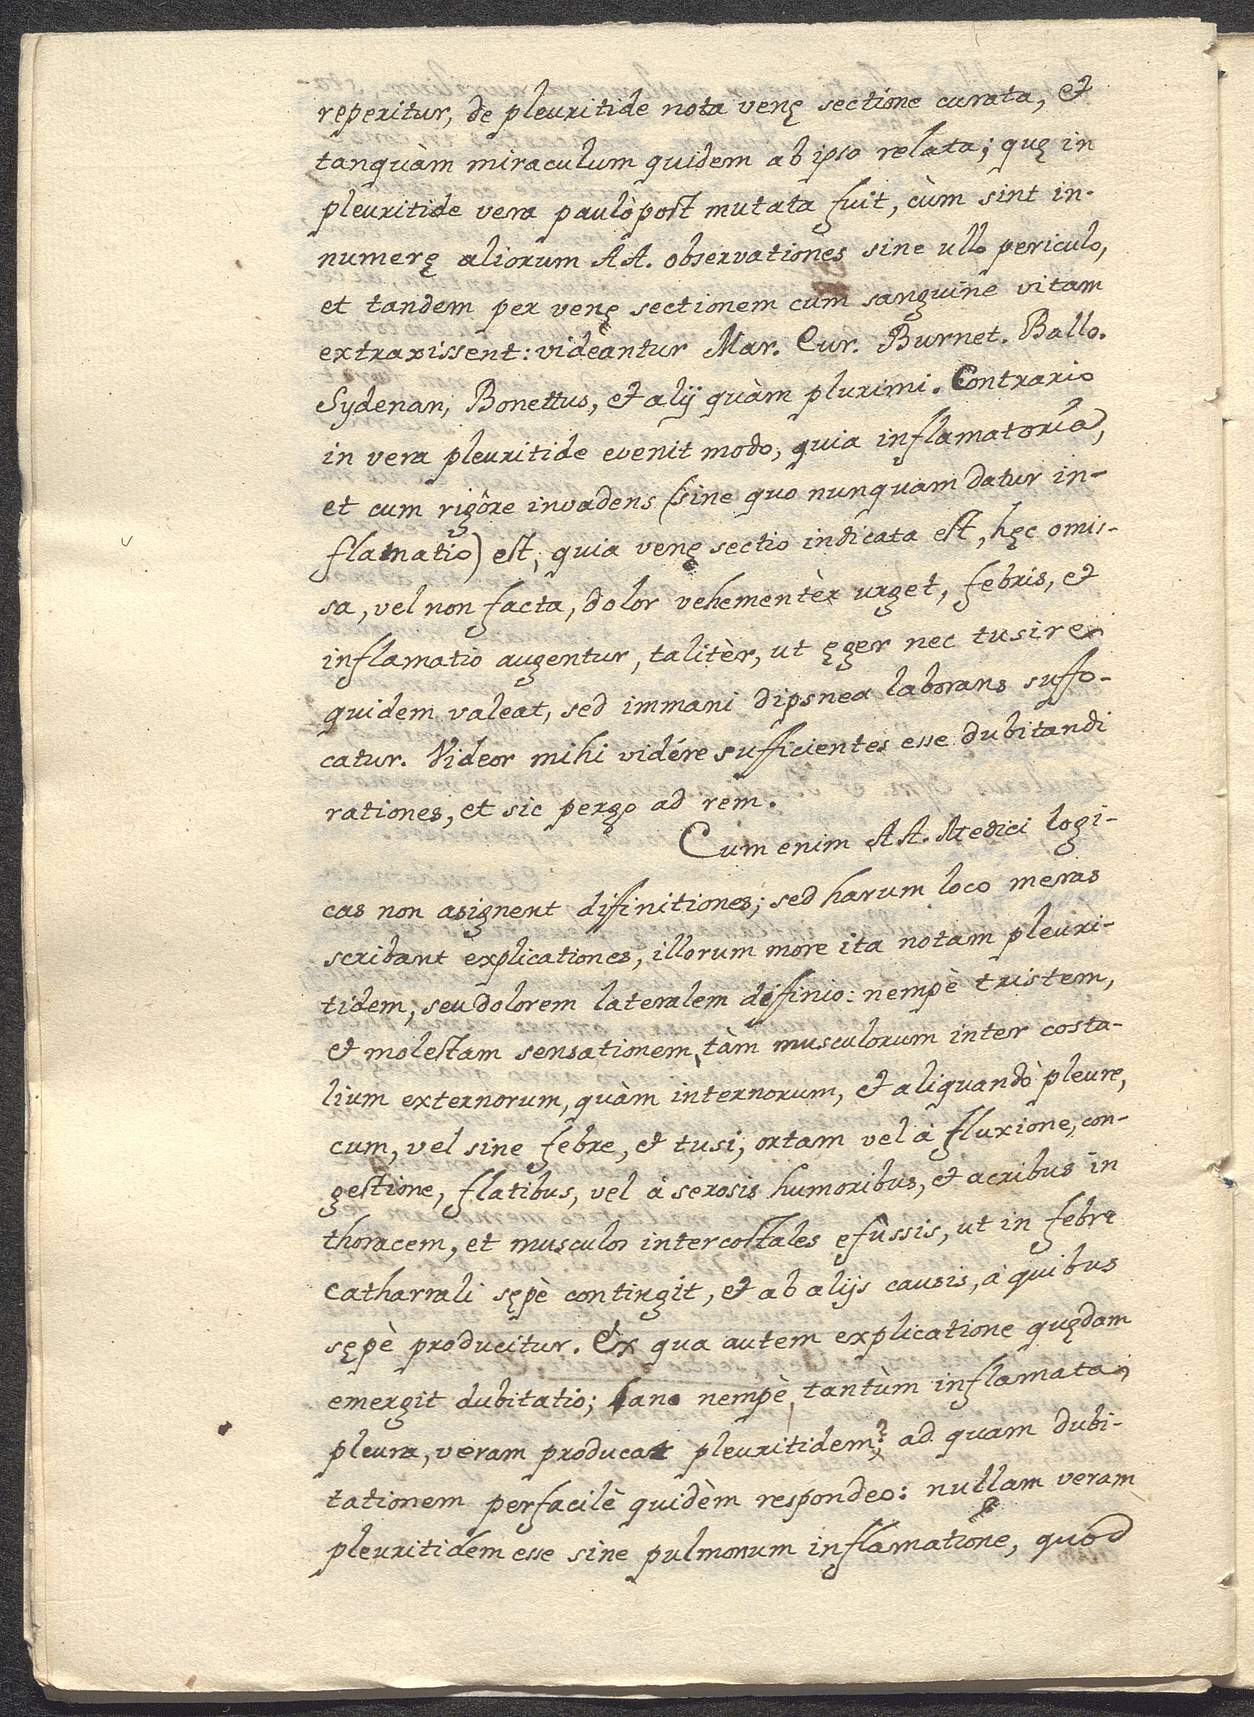 reperitur, de pleuritide nota venę sectione curata, et
tanquàm miraculum quidem ab ipso relata; quę in
pleuritide vera paulòpost mutata fuit, cùm sint in-
numerę aliorum AA. observationes sine ullo periculo,
et tandem per venę sectionem cum sanguine vitam
extraxissent: videantur Mar. Cur. Burnet. Ballo.
Sydenan, Bonettus, et alij quàm plurimi. Contrario
in vera pleuritide evenit modo, quia inflamatoria,
et cum rigôre invadens (sine quo nunquam datur in-
flamatio) est, quia venę sectio indicata est, hęc omis-
sa, vel non facta, dolor vehementèr urget, febris, et
inflamatio augentur, talitèr, ut ęger nec tusire
quidem valeat, sed immani dipsnea laborans suffo-
catur. Videor mihi vidére sufficientes esse dubitandi
rationes, et sic pergo ad rem.
Cum enim AA. Medici logi-
cas non asignent difinitiones; sed harum loco meras
scribant explicationes, illorum more ita notam pleuri-
tidem, seu dolorem lateralem diffinio: nempè tristem,
et molestam sensationem, tàm musculorum inter costa-
lium externorum, quàm internorum, et aliquandò pleure,
cum, vel sine febre, et tusi, ortam vel à fluxione, con-
gestione, flatibus, vel à serosis humoribus, et acribus in
thoracem, et musculos intercostales efussis, ut in febre
catharrali sępè contingit, et ab alijs causis, à quibus
sępè producitur. Ex qua autem explicatione quędam
emergit dubitatio; nempè, tantùm inflamata,
pleura, veram producat pleuritidem? ad quam dubi-
tationem perfacilè quidèm respondeo: nullam veram
pleuritidem esse sine pulmonum inflamatione, quod